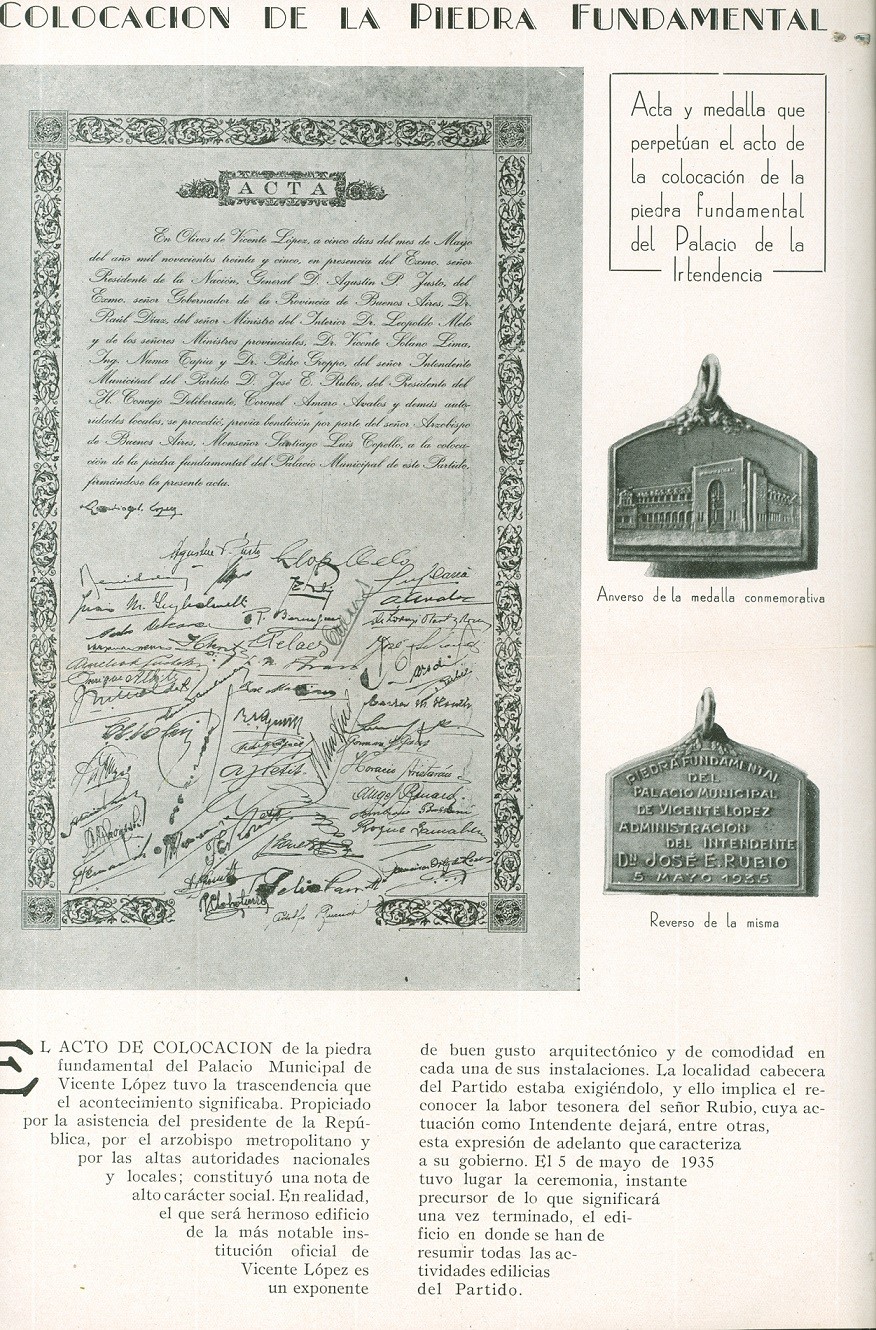 COLOCACION DE LA PIEDRA FUNDAMENTAL
Acta y medalla que
perpetúan el acto de
la colocación de la
piedra fundamental
del Palacio de la
Irtendencia
ACTA
En Olivos de Vicente López, a cinco días del mes de Mayo
del año mil novecientos treinta y cinco, en presencia del Exmo. señor
Presidente de la Nación, General D. Agustín P. Justo, del
Exmo. señor Gobernador de la Provincia de Buenos Aires, Dr.
Raúl Díaz, del señor Ministro del Interior Dr. Leopoldo Melo
y de los señores Ministros provinciales, Dr. Vicente Solano Lima,
Ing. Numa Tapia y Dr. Pedro Groppo, del señor Intendente
Municipal del Partido D. José E. Rubio, del Presidente del
H. Concejo Deliberante, Coronel Amaro Avalos y demás auto-
ridades locales, se procedió, previa bendición por parte del señor Arzobispo
de Buenos Aires, Monseñor Santiago Luis Copello, a la coloca-
ción de la piedra fundamental del Palacio Municipal de este Partido,
firmándose la presente acta.
Agustín P. Justo
Horacio
Angel
Roque
Felix
Adolfo
Anverso de la medalla conmemorativa
PIEDRA FUNDAMENTAL
DEL
PALACIO MUNICIPAL
DE VICENTE LOPEZ
ADMINISTRACION
DEL INTENDENTE
DN JOSÉ E. RUBIO
5 MAYO 1935
Reverso de la misma
EL ACTO DE COLOCACION de la piedra
fundamental del Palacio Municipal de
Vicente López tuvo la trascendencia que
el acontecimiento significaba. Propiciado
por la asistencia del presidente de la Repú-
blica, por el arzobispo metropolitano y
por las altas autoridades nacionales
y locales; constituyó una nota de
alto carácter social. En realidad,
el que será hermoso edificio
de la más notable ins-
titución oficial de
Vicente López es
un exponente
de buen gusto arquitectónico y de comodidad en
cada una de sus instalaciones. La localidad cabecera
del Partido estaba exigiéndolo, y ello implica el re-
conocer la labor tesonera del señor Rubio, cuya ac-
tuación como Intendente dejará, entre otras,
esta expresión de adelanto que caracteriza
a su gobierno. El 5 de mayo de 1935
tuvo lugar la ceremonia, instante
precursor de lo que significará
una vez terminado, el edi-
ficio en donde se han de
resumir todas las ac-
tividades edilicias
del Partido.